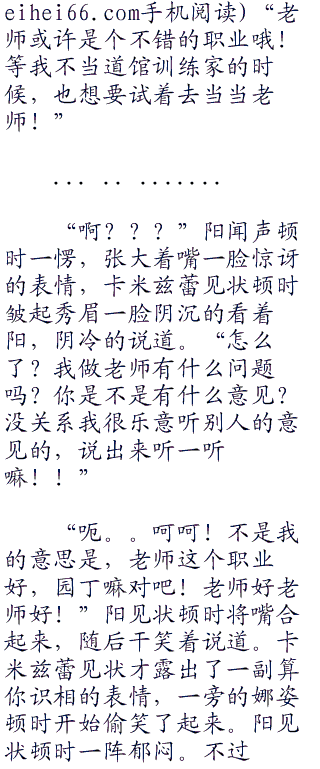 eihei66.com手机阅读)“老
师或许是个不错的职业哦！
等我不当道馆训练家的时
候，也想要试着去当当老
师！”
... .. .......
“啊？？？”阳闻声顿
时一愣，张大着嘴一脸惊讶
的表情，卡米兹蕾见状顿时
皱起秀眉一脸阴沉的看着
阳，阴冷的说道。“怎么
了？我做老师有什么问题
吗？你是不是有什么意见？
没关系我很乐意听别人的意
见的，说出来听一听
嘛！！”
“呃。。呵呵！不是我
的意思是，老师这个职业
好，园丁嘛对吧！老师好老
师好！”阳见状顿时将嘴合
起来，随后干笑着说道。卡
米兹蕾见状才露出了一副算
你识相的表情，一旁的娜姿
顿时开始偷笑了起来。阳见
状顿时一阵郁闷。不过